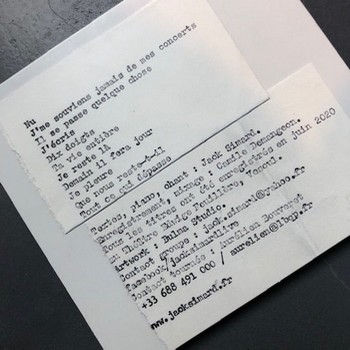 Nu
J'me souviens jamais de mes concerts
Il se passe quelque chose
J'écris
Dix doigts
Ta vie entière
Je reste là
Demain il fera jour
Je pleure
Que nous reste-t-il
Tout ce qui dépasse
Textes, piano, chant : Jack Simard.
Enregistrement, mixage : Camille Demangeon.
Tous les titres ont été enregistrés en juin 2020
au Théâtre Edwige Feuillère, Vesoul.
Artwork : Bulma Studio.
Contact groupe : jack.simard@yahoo.fr
Facebook/jacksimardlive
Contact tournée : Aurélien Bourreret
+33 688 491 000 / aurelien@lbop.fr
www.jacksimard.fr